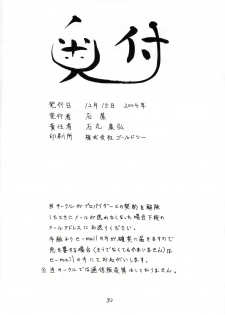 奥付
発行日 12月15日 2004年
発行者 石恵
責任者 石丸
印刷所 株式会社ゴールドシー
当サークルがプロバイダーとの契約を解除
したためにメールが送れなくなった場合下段の
メールアドレスにお送りください。
手紙よりe-mailの方が確実に届きますので
先を急する場合(そうでなくてもかまいません)は
e-mailの方にておねがいします。
当サークルでは通信販売はしておりません。
30